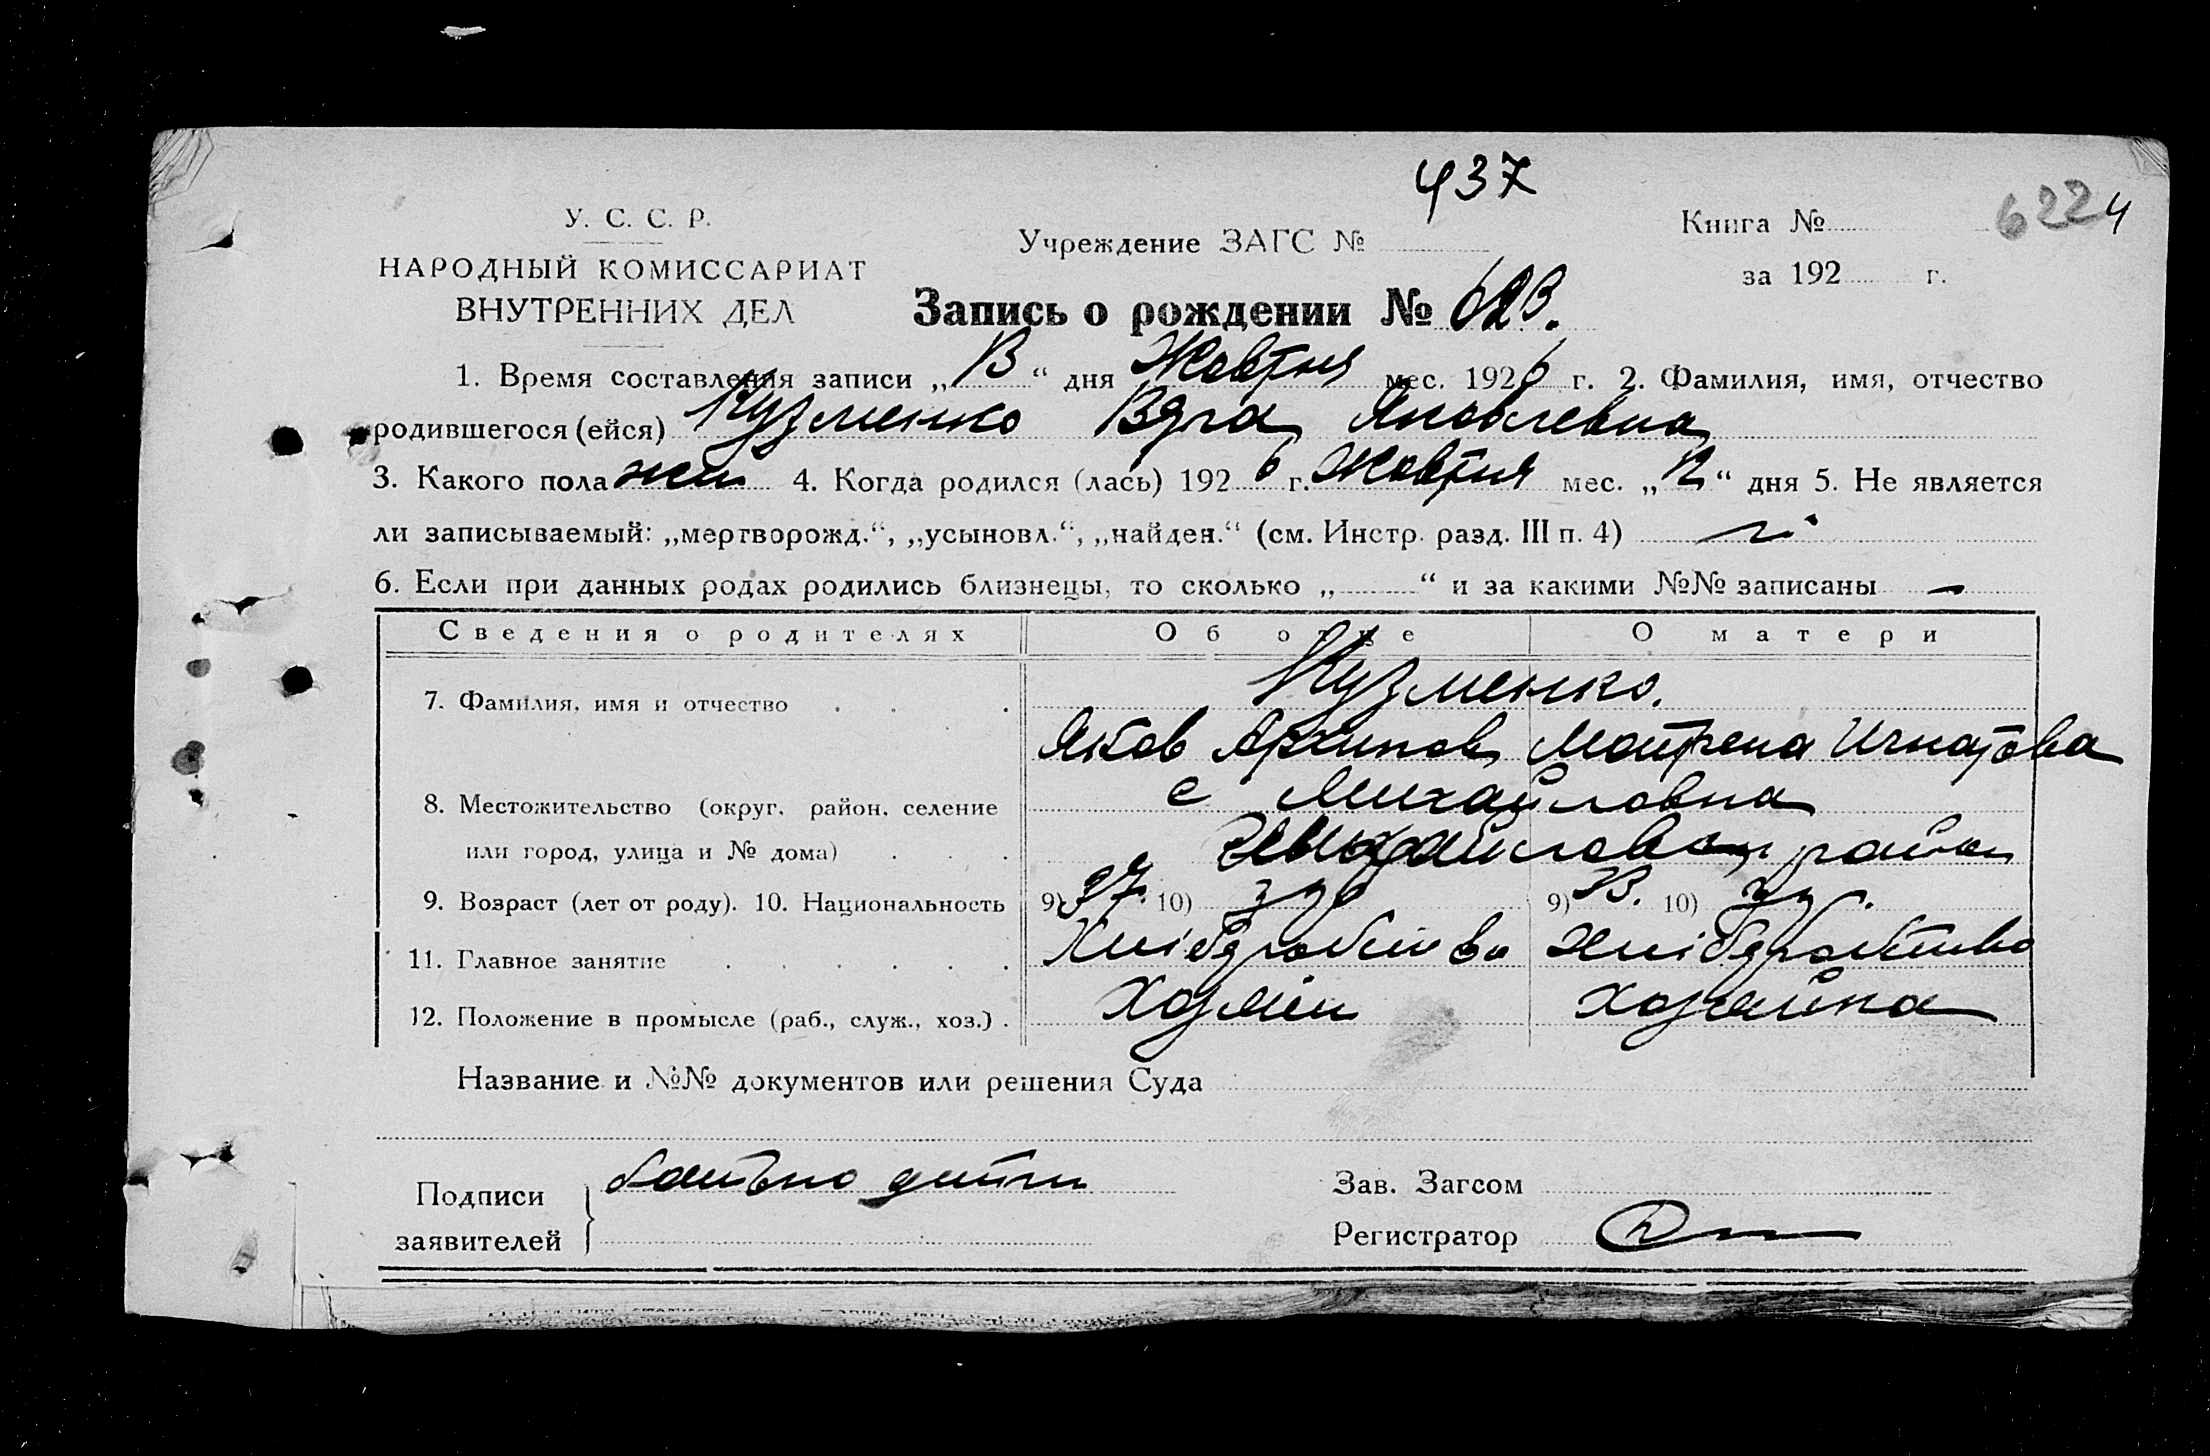 437
6224
У. С. С. Р.
НАРОДНЫЙ КОМИССАРИАТ
ВНУТРЕННИХ ДЕЛ
Учреждение ЗАГС №
Книга №
за 192 г.
Запись о рождении №
1. Время составления записи „ “ дня Жовтня мес. 1926 г. 2. Фамилия, имя, отчество
родившегося (ейся) Кузменко Яковлевна
3. Какого пола жін 4. Когда родился (лась) 1926 г. Жовтня мес. „12“ дня 5. Не является
ли записываемый: „мертворожд.“, „усыновл.“, „найден.“ (см. Инстр. разд. III п. 4)
6. Если при данных родах родились близнецы, то сколько „ “ и за какими №№ записаны —
Сведения о родителях Об отце О матери
7. Фамилия, имя и отчество Кузменко.
Яков Архипов Мотрена Игнатова
8. Местожительство (округ, район, селение с Михайловка
или город, улица и № дома) район
9. Возраст (лет от роду). 10. Национальность 9) 37. 10) укр 9) 10) укр.
11. Главное занятие Хлібробство Хлібробство
12. Положение в промысле (раб., служ., хоз.) Хозяин хозяйка
Название и №№ документов или решения Суда
Подписи заявителей батько дитя
Зав. Загсом
Регистратор